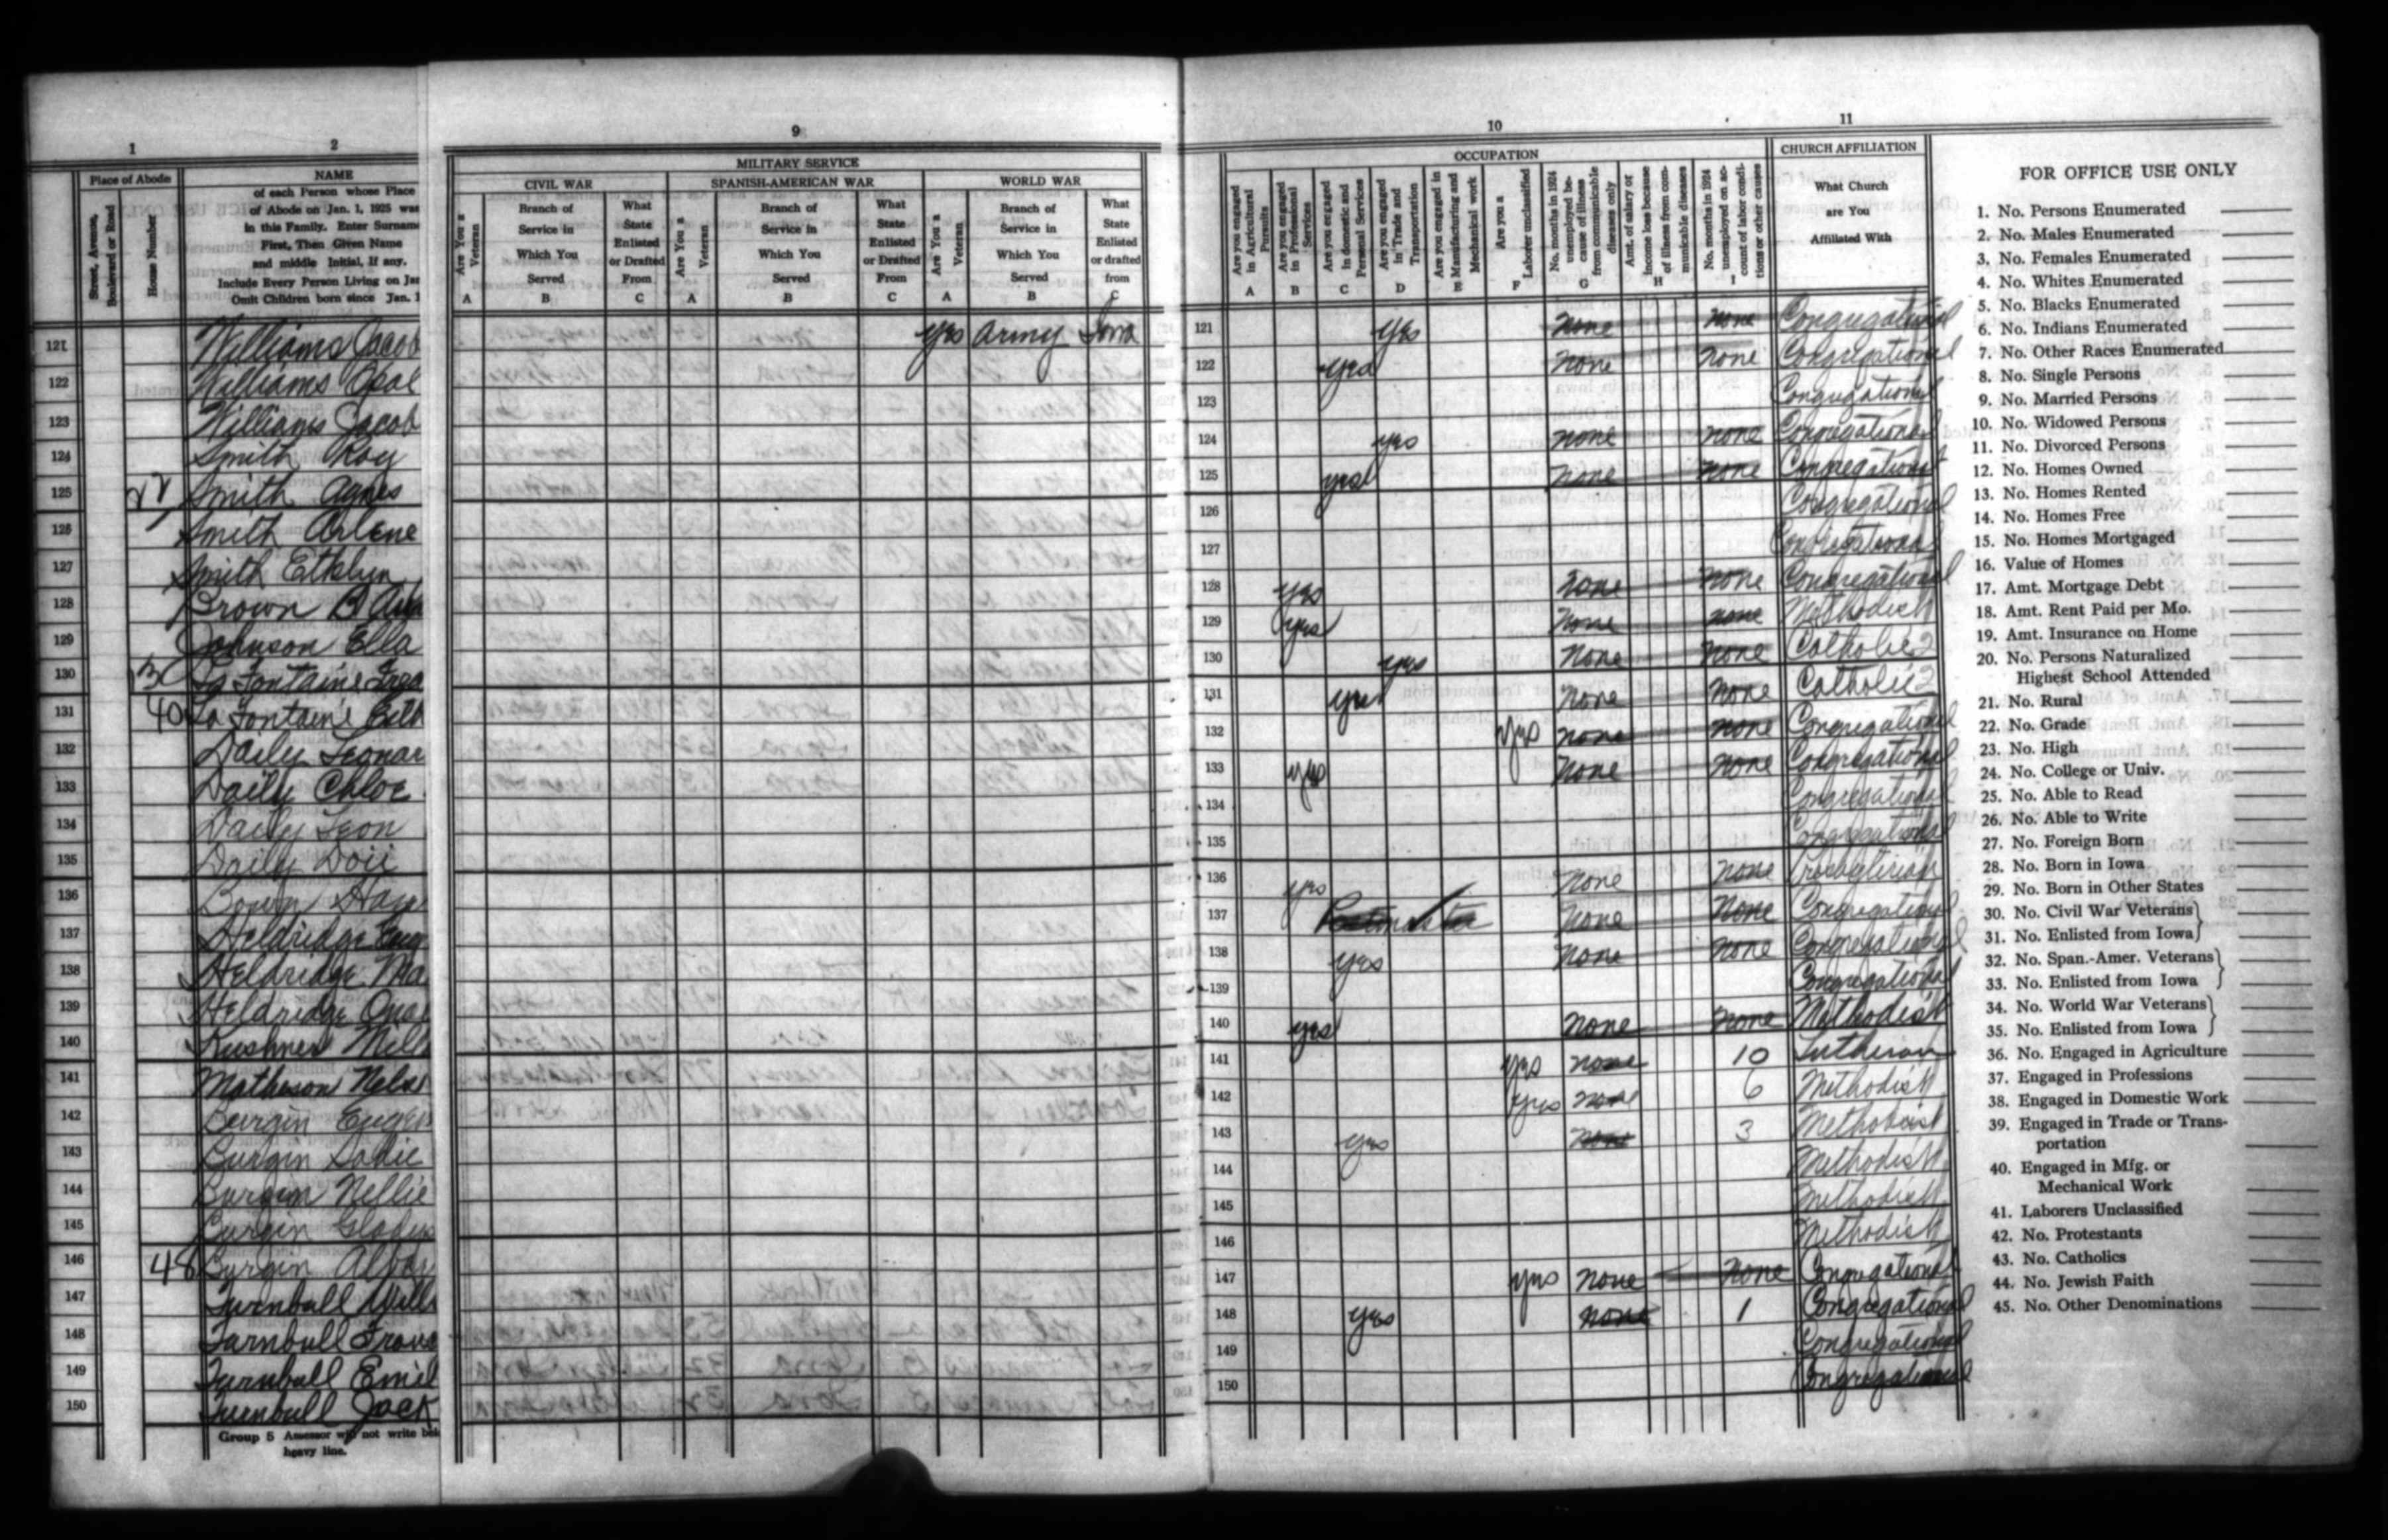 1 2 9 10 11
Place of Abode
Street, Avenue, Boulevard or Road
House Number
NAME
of each Person whose Place
of Abode on Jan. 1, 1925 was
in this Family. Enter Surname
First, Then Given Name
and middle Initial, if any.
Include Every Person Living on Jan
Omit Children born since Jan. 1
MILITARY SERVICE
CIVIL WAR SPANISH-AMERICAN WAR WORLD WAR
Are You a Veteran
Branch of Service in Which You Served
What State Enlisted or Drafted From
Are You a Veteran
Branch of Service in Which You Served
What State Enlisted or Drafted From
Are You a Veteran
Branch of Service in Which You Served
What State Enlisted or drafted from
A B C A B C A B C
OCCUPATION
Are you engaged in Agricultural Pursuits
Are you engaged in Professional Services
Are you engaged in domestic and Personal Services
Are you engaged in Trade and Transportation
Are you engaged in Manufacturing and Mechanical work
Are you a Laborer unclassified
No. months in 1924 unemployed because of illness from communicable diseases only
Amt. of salary or income loss because of illness from communicable diseases
No. months in 1924 unemployed on account of labor conditions or other causes
A B C D E F G H I
CHURCH AFFILIATION
What Church
are You
Affiliated With
121 Williams Jacob yes Army Iowa 121 yes none none Congregational
122 Williams Opal 122 yes none none Congregational
123 Williams Jacob 123 Congregational
124 Smith Roy 124 yes none none Congregational
125 Smith Agnes 125 yes none none Congregational
126 Smith Arlene 126 Congregational
127 Smith Ethelyn 127 Congregational
128 Brown B 128 yes none none Congregational
129 Johnson Ella 129 yes none none Methodist
130 La Fontaine 130 yes none none Catholic 2
131 40 La Fontaine 131 yes none none Catholic 2
132 Daily Leonar 132 yes none none Congregational
133 Daily Chloe 133 yes none none Congregational
134 Daily Leon 134 Congregational
135 Daily 135 Congregational
136 136 yes none none Presbyterian
137 Heldridge 137 Postmaster none none Congregational
138 Heldridge Ma 138 yes none none Congregational
139 Heldridge 139 Congregational
140 Kushner 140 yes none none Methodist
141 Matheson Nels 141 yes none 10 Lutheran
142 Burgin Eugen 142 yes none 6 Methodist
143 Burgin Sadie 143 yes none 3 Methodist
144 Burgin Nellie 144 Methodist
145 Burgin Gladys 145 Methodist
146 48 Burgin 146 Methodist
147 Turnbull Will 147 yes none none Congregational
148 Turnbull 148 yes none 1 Congregational
149 Turnbull Emil 149 Congregational
150 Turnbull Jack 150 Congregational
Group 5 Assessor will not write bel
heavy line.
FOR OFFICE USE ONLY
1. No. Persons Enumerated
2. No. Males Enumerated
3. No. Females Enumerated
4. No. Whites Enumerated
5. No. Blacks Enumerated
6. No. Indians Enumerated
7. No. Other Races Enumerated
8. No. Single Persons
9. No. Married Persons
10. No. Widowed Persons
11. No. Divorced Persons
12. No. Homes Owned
13. No. Homes Rented
14. No. Homes Free
15. No. Homes Mortgaged
16. Value of Homes
17. Amt. Mortgage Debt
18. Amt. Rent Paid per Mo.
19. Amt. Insurance on Home
20. No. Persons Naturalized
Highest School Attended
21. No. Rural
22. No. Grade
23. No. High
24. No. College or Univ.
25. No. Able to Read
26. No. Able to Write
27. No. Foreign Born
28. No. Born in Iowa
29. No. Born in Other States
30. No. Civil War Veterans
31. No. Enlisted from Iowa
32. No. Span.-Amer. Veterans
33. No. Enlisted from Iowa
34. No. World War Veterans
35. No. Enlisted from Iowa
36. No. Engaged in Agriculture
37. Engaged in Professions
38. Engaged in Domestic Work
39. Engaged in Trade or Trans-
portation
40. Engaged in Mfg. or
Mechanical Work
41. Laborers Unclassified
42. No. Protestants
43. No. Catholics
44. No. Jewish Faith
45. No. Other Denominations